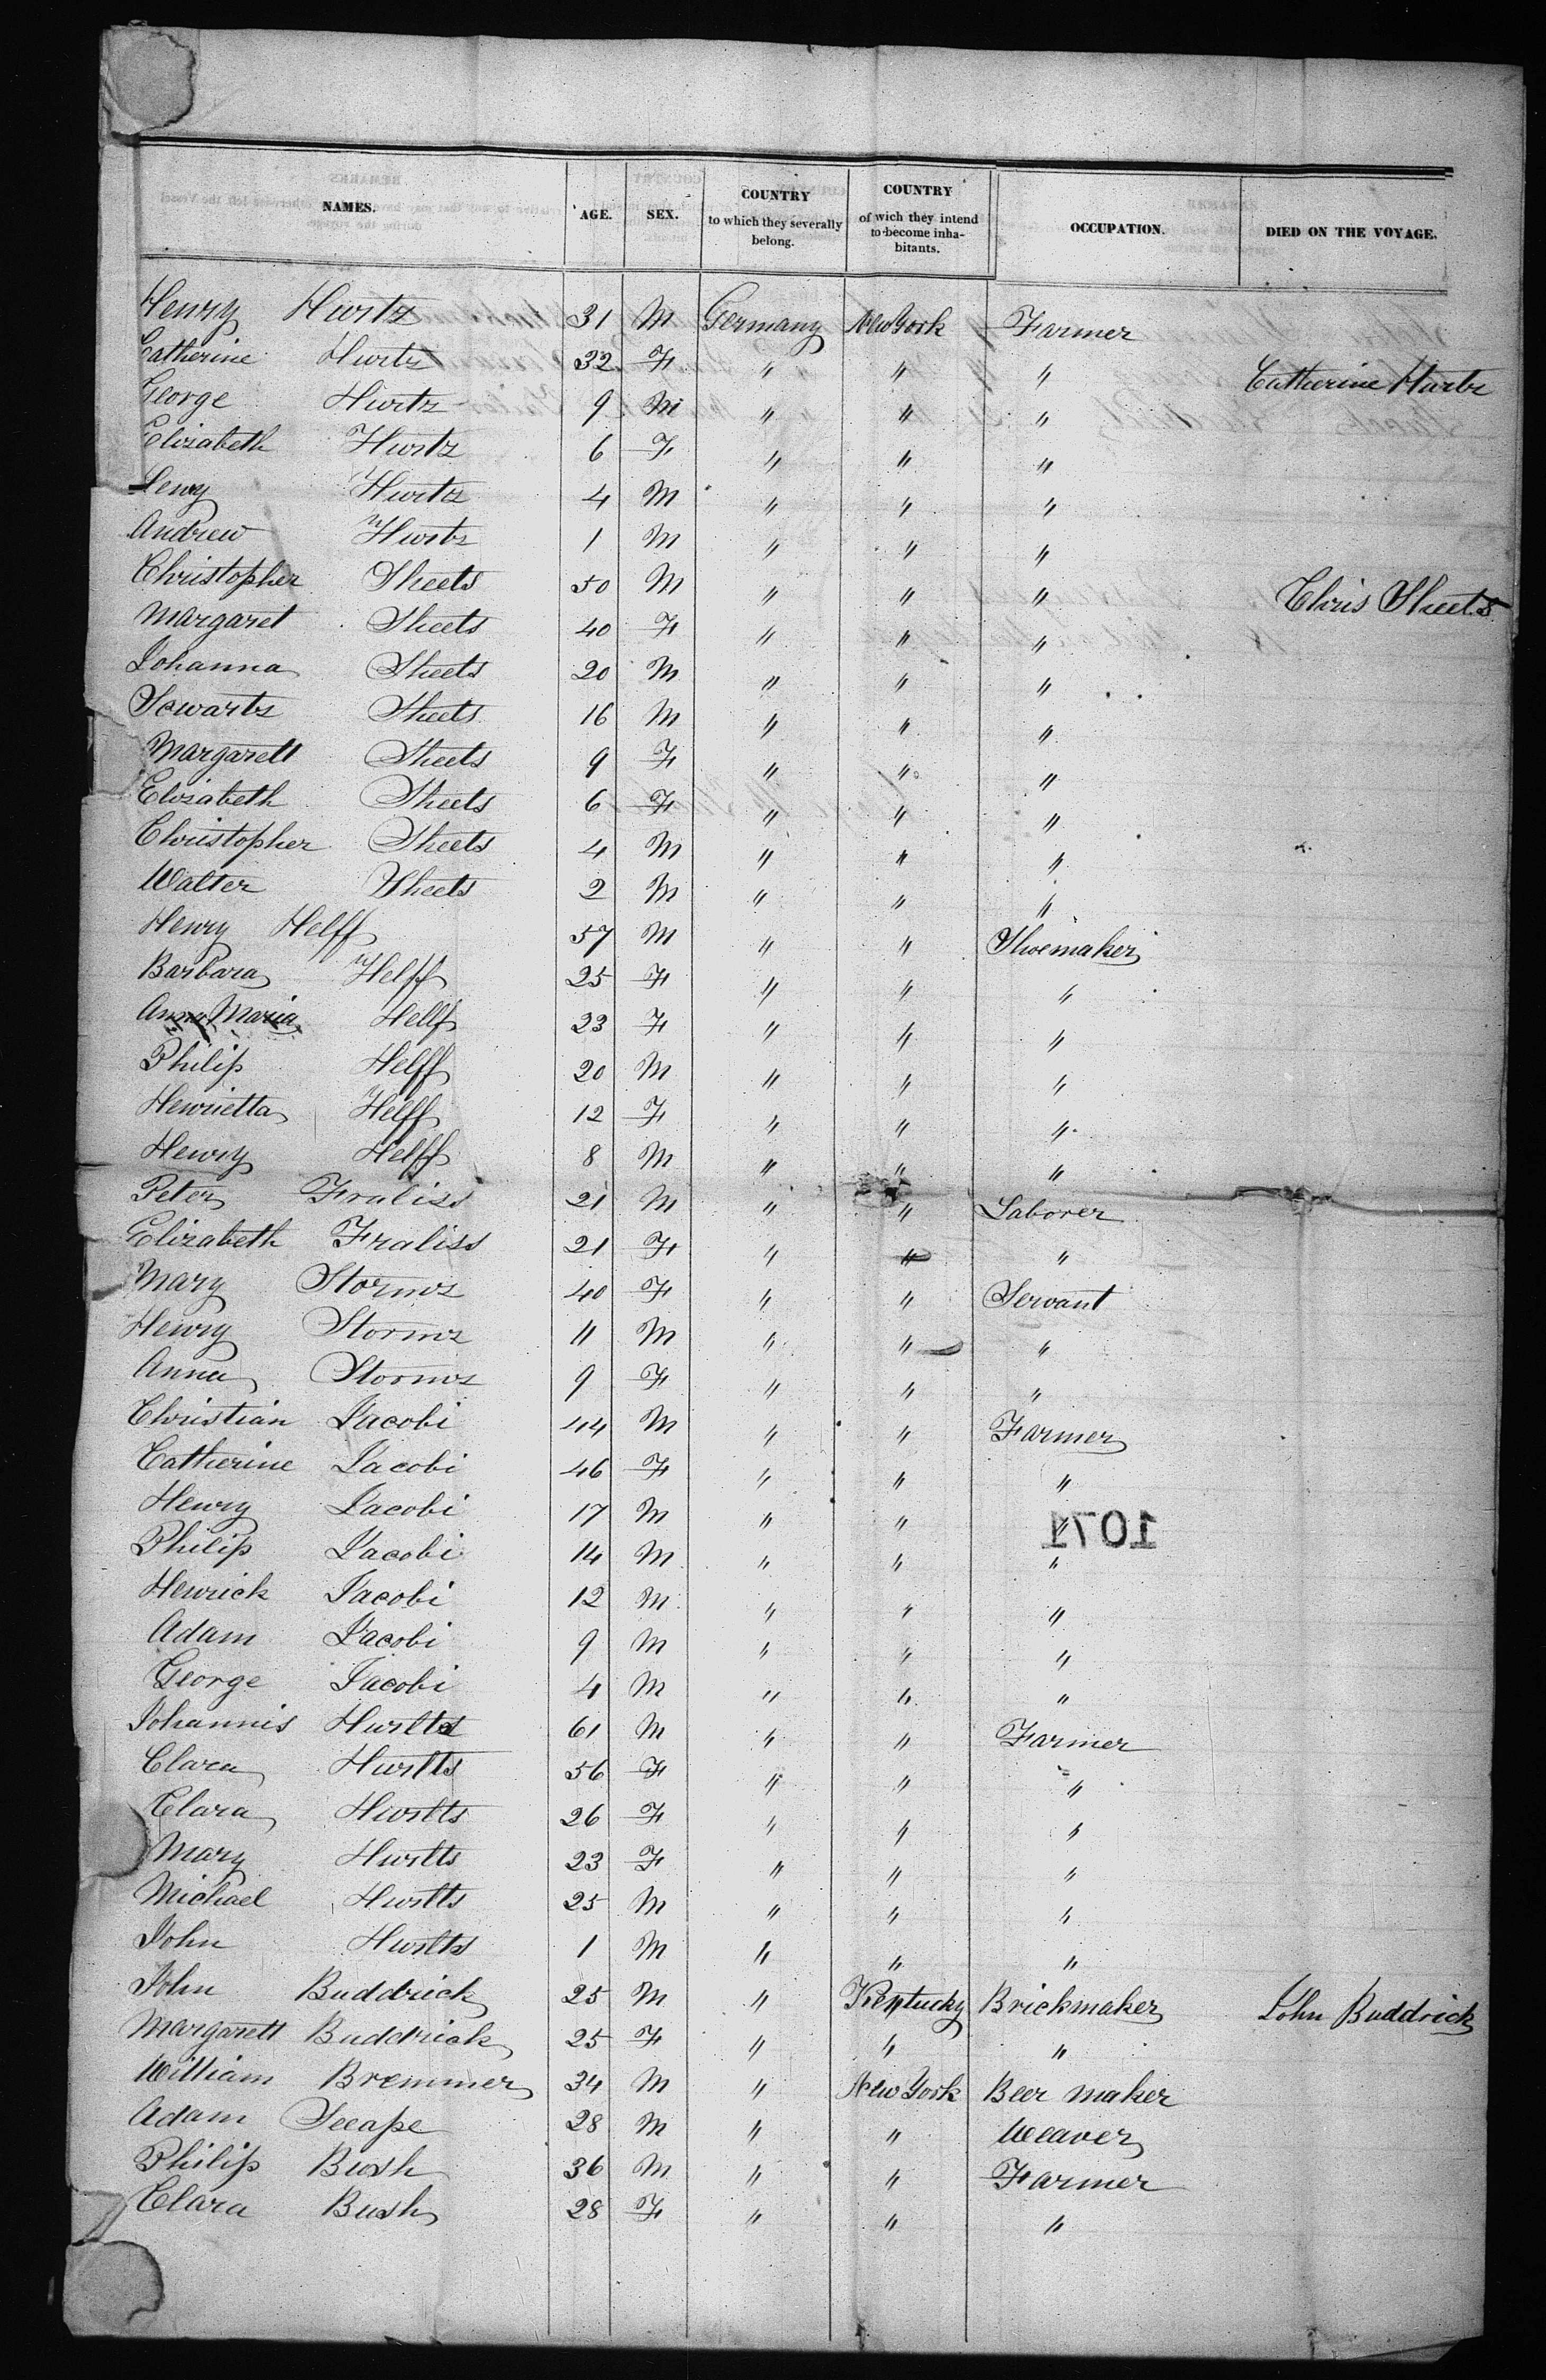 NAMES. AGE. SEX. COUNTRY to which they severally belong. COUNTRY of wich they intend to become inhabitants. OCCUPATION. DIED ON THE VOYAGE.
Henry Hurtz 31 M Germany New York Farmer
Catherine Hurtz 32 F " " " Catherine Hurtz
George Hurtz 9 M " " "
Elizabeth Hurtz 6 F " " "
Henry Hurtz 4 M " " "
Andrew Hurtz 1 M " " "
Christopher Sheets 50 M " " " Chris Sheets
Margaret Sheets 40 F " " "
Johanna Sheets 20 M " " "
Sewarts Sheets 16 M " " "
Margarett Sheets 9 F " " "
Elizabeth Sheets 6 F " " "
Christopher Sheets 4 M " " "
Walter Sheets 2 M " " "
Henry Helff 57 M " " Shoemaker
Barbara Helff 25 F " " "
Anna Maria Helff 23 F " " "
Philip Helff 20 M " " "
Henrietta Helff 12 F " " "
Henry Helff 8 M " " "
Peter Fraliss 21 M " " Laborer
Elizabeth Fraliss 21 F " " "
Mary Stormz 40 F " " Servant
Henry Stormz 11 M " " "
Anna Stormz 9 F " " "
Christian Jacobi 44 M " " Farmer
Catherine Jacobi 46 F " " "
Henry Jacobi 17 M " " "
Philip Jacobi 14 M " " "
Henrick Jacobi 12 M " " "
Adam Jacobi 9 M " " "
George Jacobi 4 M " " "
Johannis Hurlts 61 M " " Farmer
Clara Hurlts 56 F " " "
Clara Hurlts 26 F " " "
Mary Hurlts 23 F " " "
Michael Hurlts 25 M " " "
John Hurlts 1 M " " "
John Buddrick 25 M " Kentucky Brickmaker John Buddrick
Margarett Buddrick 25 F " " "
William Bremmer 34 M " New York Beer maker
Adam Seeape 28 M " " Weaver
Philip Bush 36 M " " Farmer
Clara Bush 28 F " " "